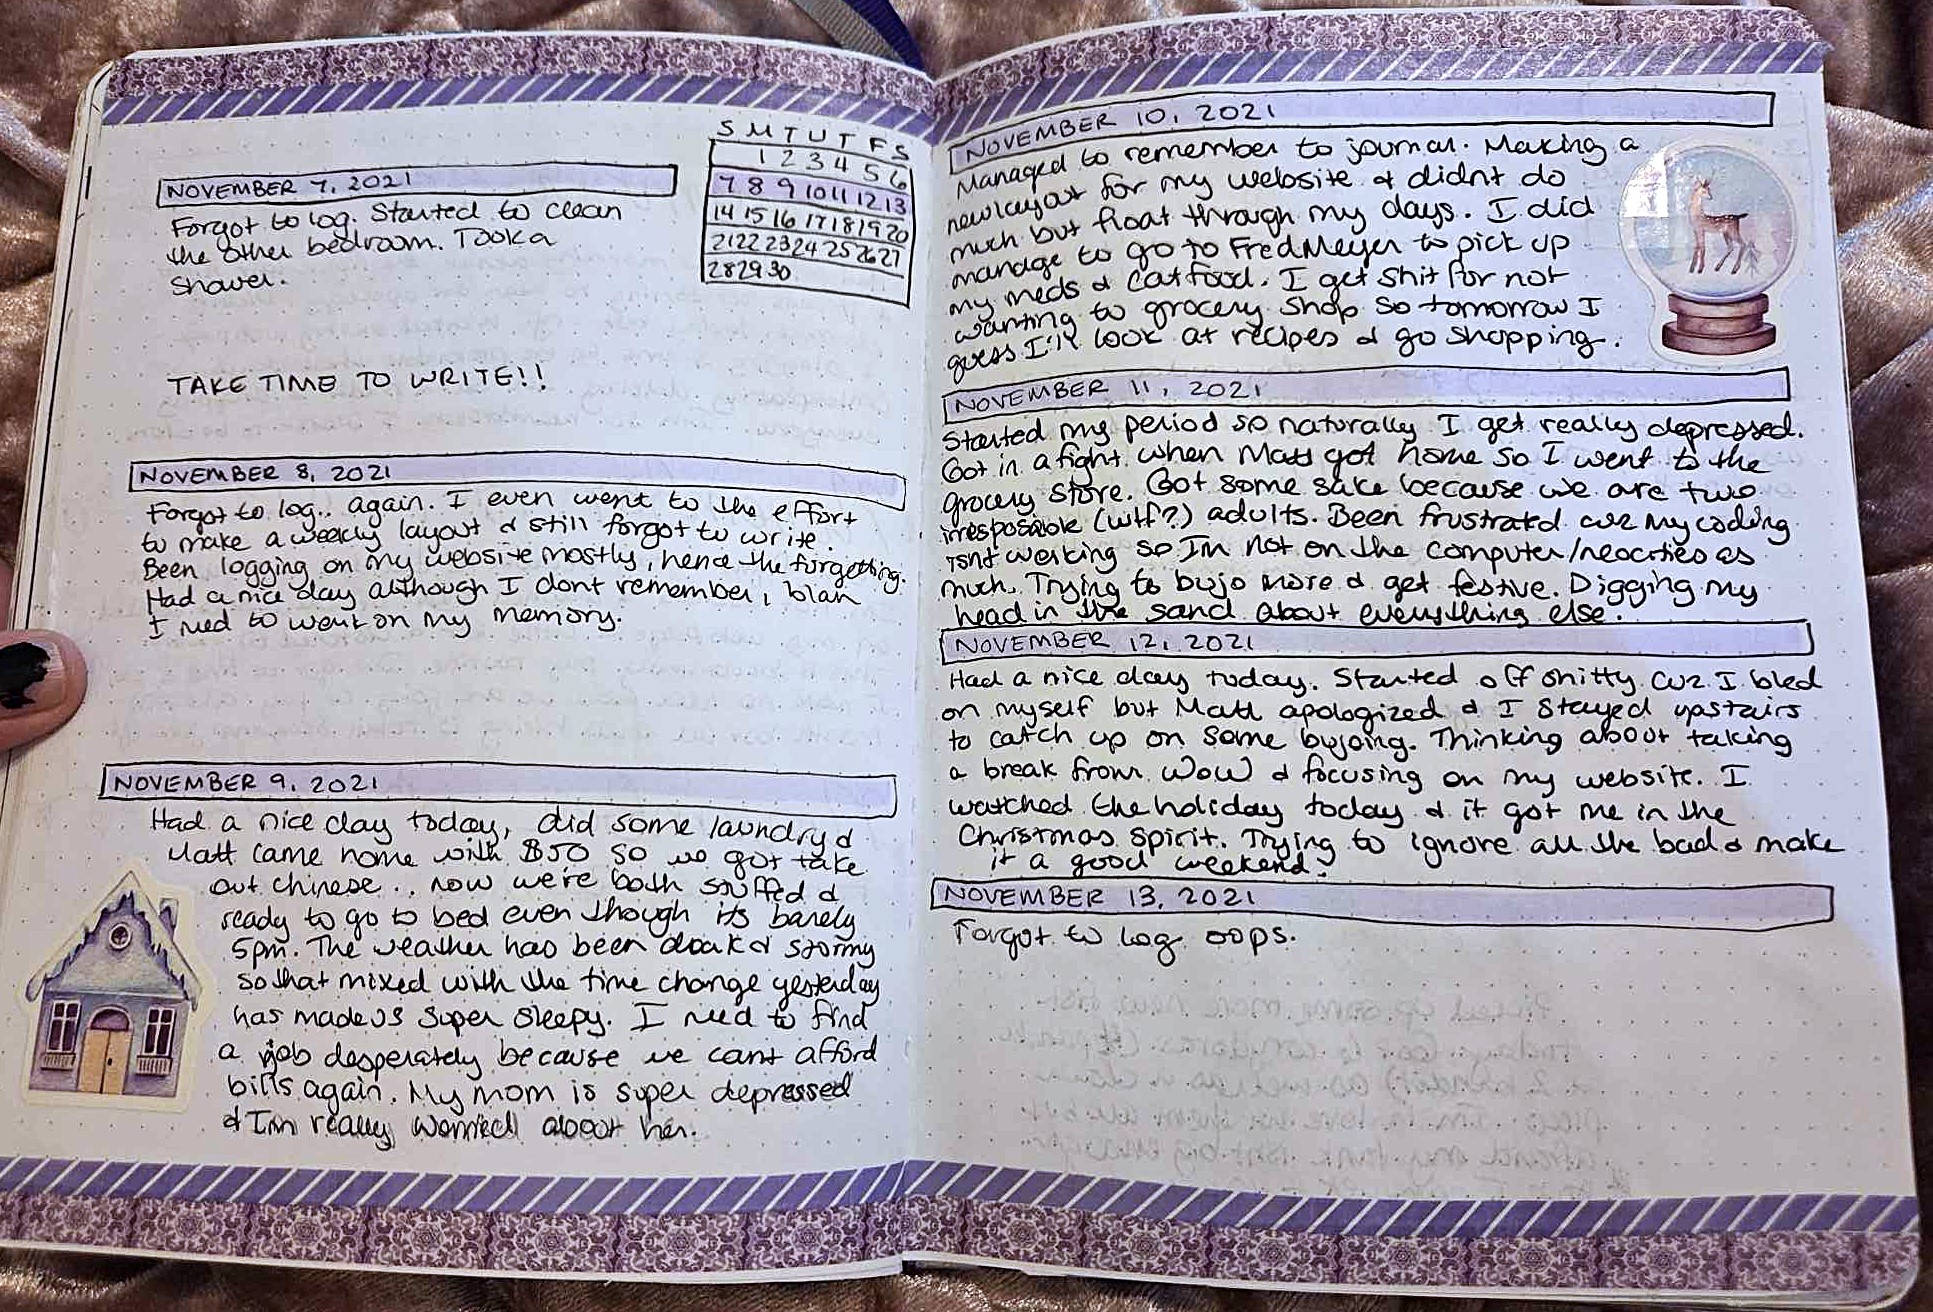 NOVEMBER 7, 2021
Forgot to log. Started to clean
the other bedroom. Took a
shower.
TAKE TIME TO WRITE!!
S M T U T F S
1 2 3 4 5 6
7 8 9 10 11 12 13
14 15 16 17 18 19 20
21 22 23 24 25 26 27
28 29 30
NOVEMBER 8, 2021
Forgot to log.. again. I even went to the effort
to make a weekly layout & still forgot to write.
Been logging on my website mostly, hence the forgetting.
Had a nice day although I dont remember, blah
I need to work on my memory.
NOVEMBER 9, 2021
Had a nice day today, did some laundry &
Matt came home with $50 so we got take
out chinese.. now we're both stuffed &
ready to go to bed even though its barely
5pm. The weather has been dark & stormy
so that mixed with the time change yesterday
has made us super sleepy. I need to find
a job desperately because we cant afford
bills again. My mom is super depressed
& I'm really worried about her.
NOVEMBER 10, 2021
Managed to remember to journal. Making a
new layout for my website & didnt do
much but float through my days. I did
manage to go to Fred Meyer to pick up
my meds & cat food. I get shit for not
wanting to grocery shop so tomorrow I
guess I'll look at recipes & go shopping.
NOVEMBER 11, 2021
Started my period so naturally I get really depressed.
Got in a fight when Matt got home so I went to the
grocery store. Got some sake because we are two
irresposible (wtf?) adults. Been frustratd cuz my coding
isnt working so Im not on the computer/neocities as
much. Trying to bujo more & get festive. Digging my
head in the sand about everything else.
NOVEMBER 12, 2021
Had a nice day today. Started off shitty cuz I bled
on myself but Matt apologized & I stayed upstairs
to catch up on some bujoing. Thinking about taking
a break from WoW & focusing on my website. I
watched the holiday today & it got me in the
Christmas spirit. Trying to ignore all the bad & make
it a good weekend.
NOVEMBER 13, 2021
Forgot to log oops.